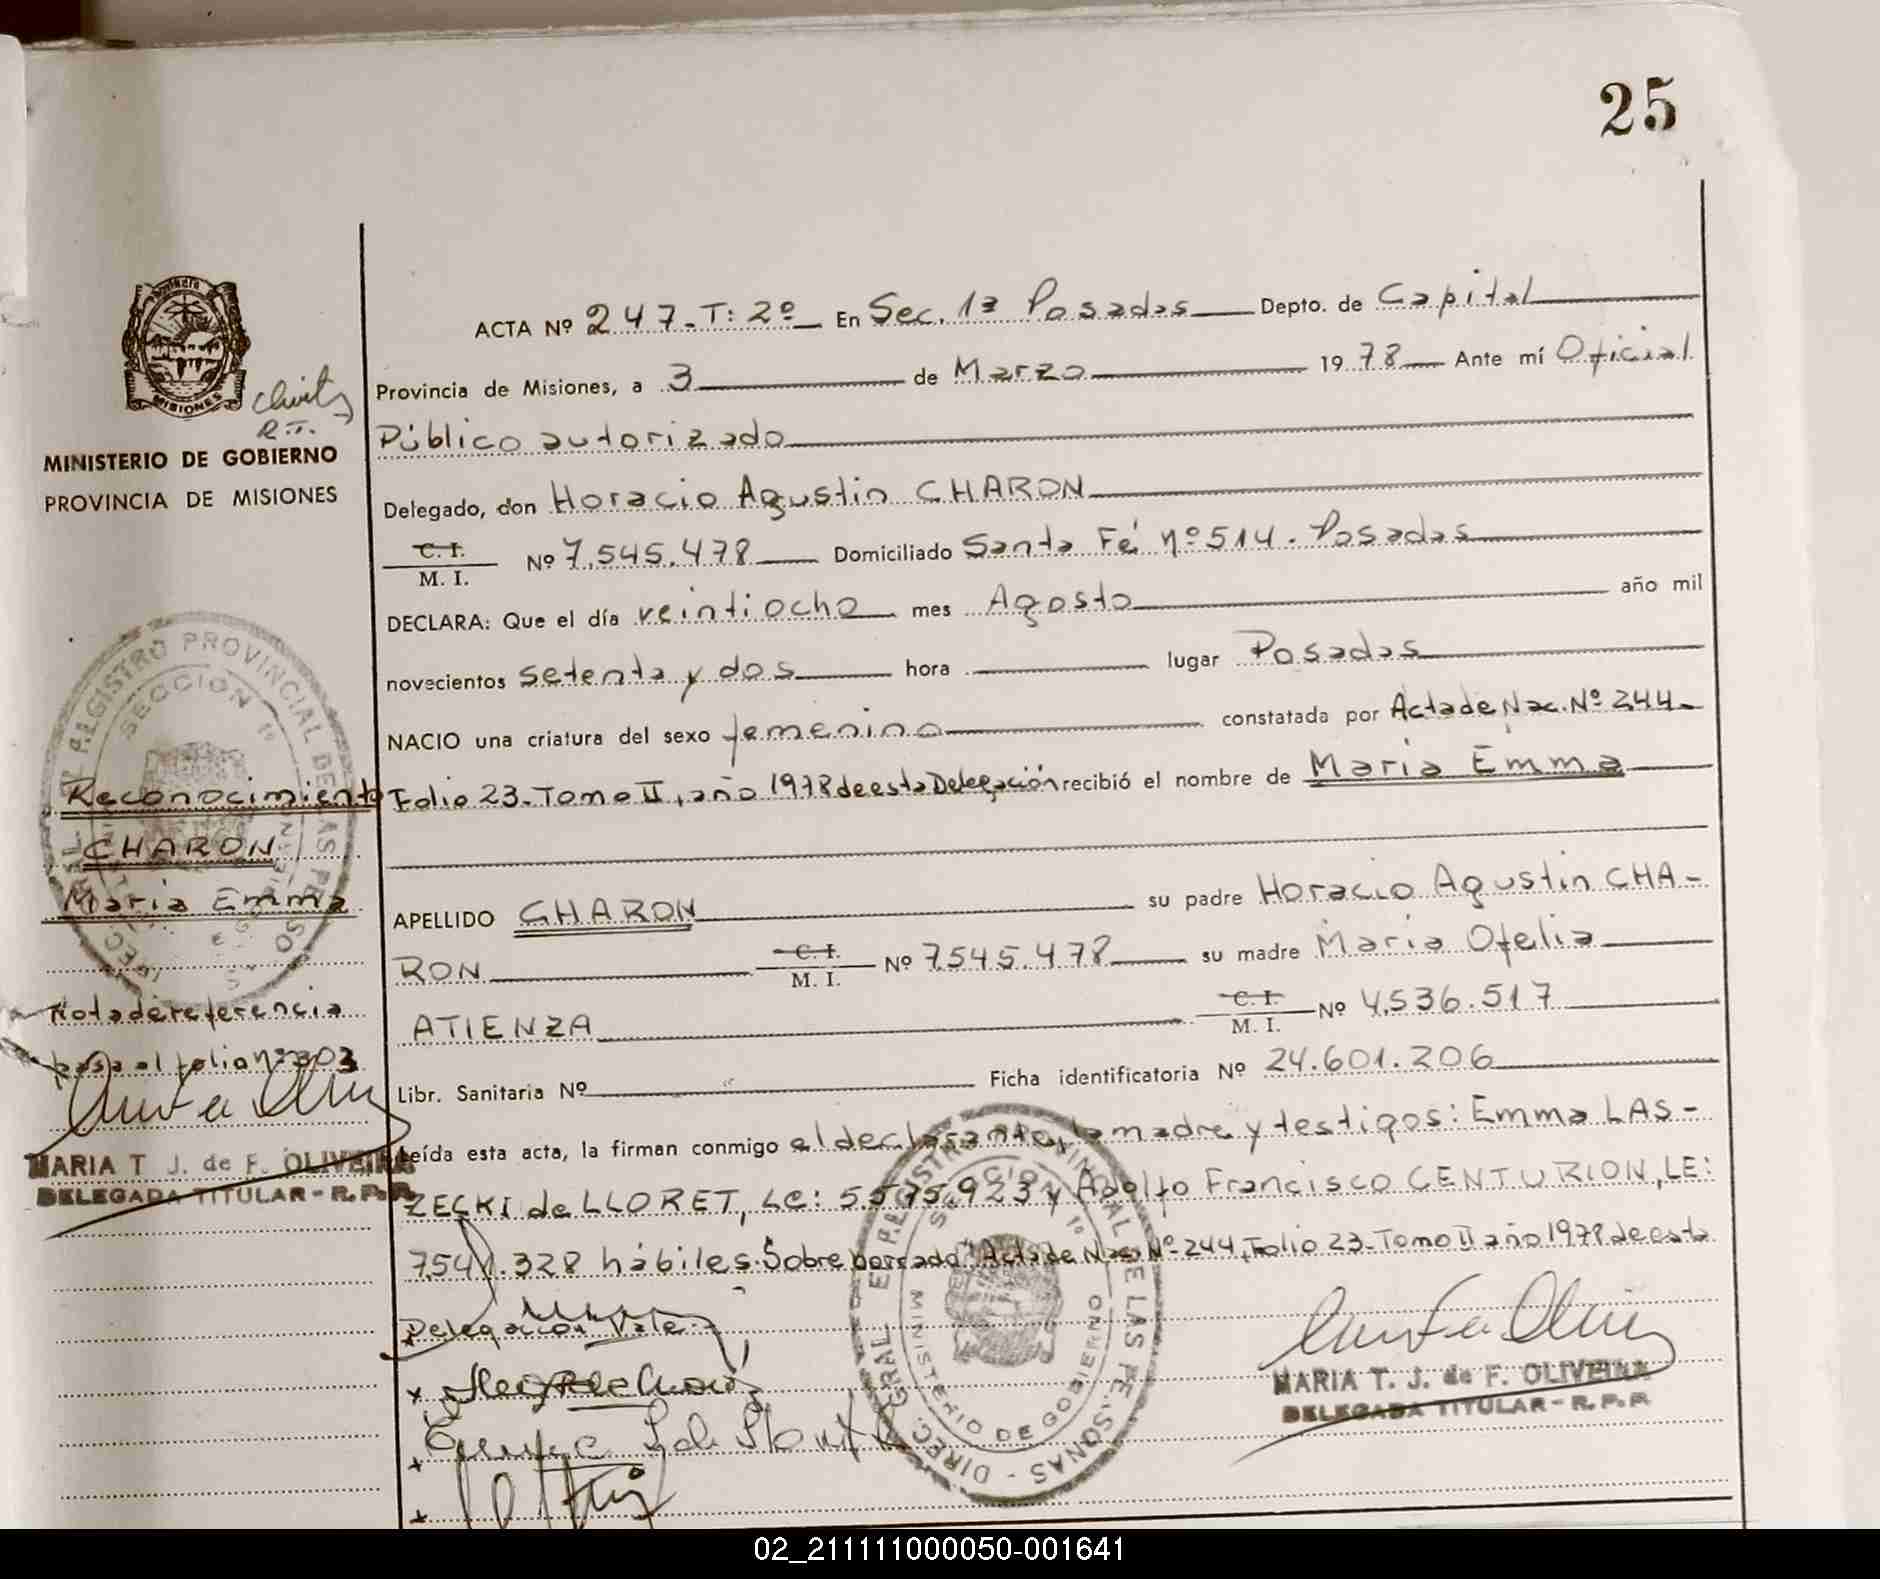 25
ACTA Nº 247-T: 2º En Sec. 1ª Posadas Depto. de Capital
Provincia de Misiones, a 3 de Marzo 1978 Ante mí Oficial
Público autorizado
Delegado, don Horacio Agustin CHARON
C. I. / M. I. Nº 7.545.478 Domiciliado Santa Fé nº 514. Posadas
DECLARA: Que el día veintiocho mes Agosto año mil
novecientos setenta y dos hora lugar Posadas
NACIO una criatura del sexo femenino constatada por Acta de Nac. Nº 244-
Folio 23-Tomo II, año 1978 de esta Delegación recibió el nombre de Maria Emma
APELLIDO CHARON su padre Horacio Agustin CHA-
RON C. I. / M. I. Nº 7.545.478 su madre Maria Ofelia
ATIENZA C. I. / M. I. Nº 4.536.517
Libr. Sanitaria Nº Ficha identificatoria Nº 24.601.206
Leída esta acta, la firman conmigo el declarante, la madre y testigos: Emma LAS-
ZECKI de LLORET, LC: 5.575.923 y Adolfo Francisco CENTURION, LE:
7.541.328 hábiles. Sobre borrado "Acta de Nac. Nº 244, Folio 23-Tomo II año 1978 de esta
Delegación" Vale.
MARIA T. J. de F. OLIVEIRA
DELEGADA TITULAR - R. P. P.
MISIONES
MINISTERIO DE GOBIERNO
PROVINCIA DE MISIONES
Reconocimiento
CHARON
Maria Emma
Nota de referencia
pasa al folio nº 303
MARIA T. J. de F. OLIVEIRA
DELEGADA TITULAR - R. P. P.
REGISTRO PROVINCIAL DE LAS PERSONAS
SECCION 1º
MINISTERIO DE GOBIERNO
DIREC. GRAL
02_211111000050-001641